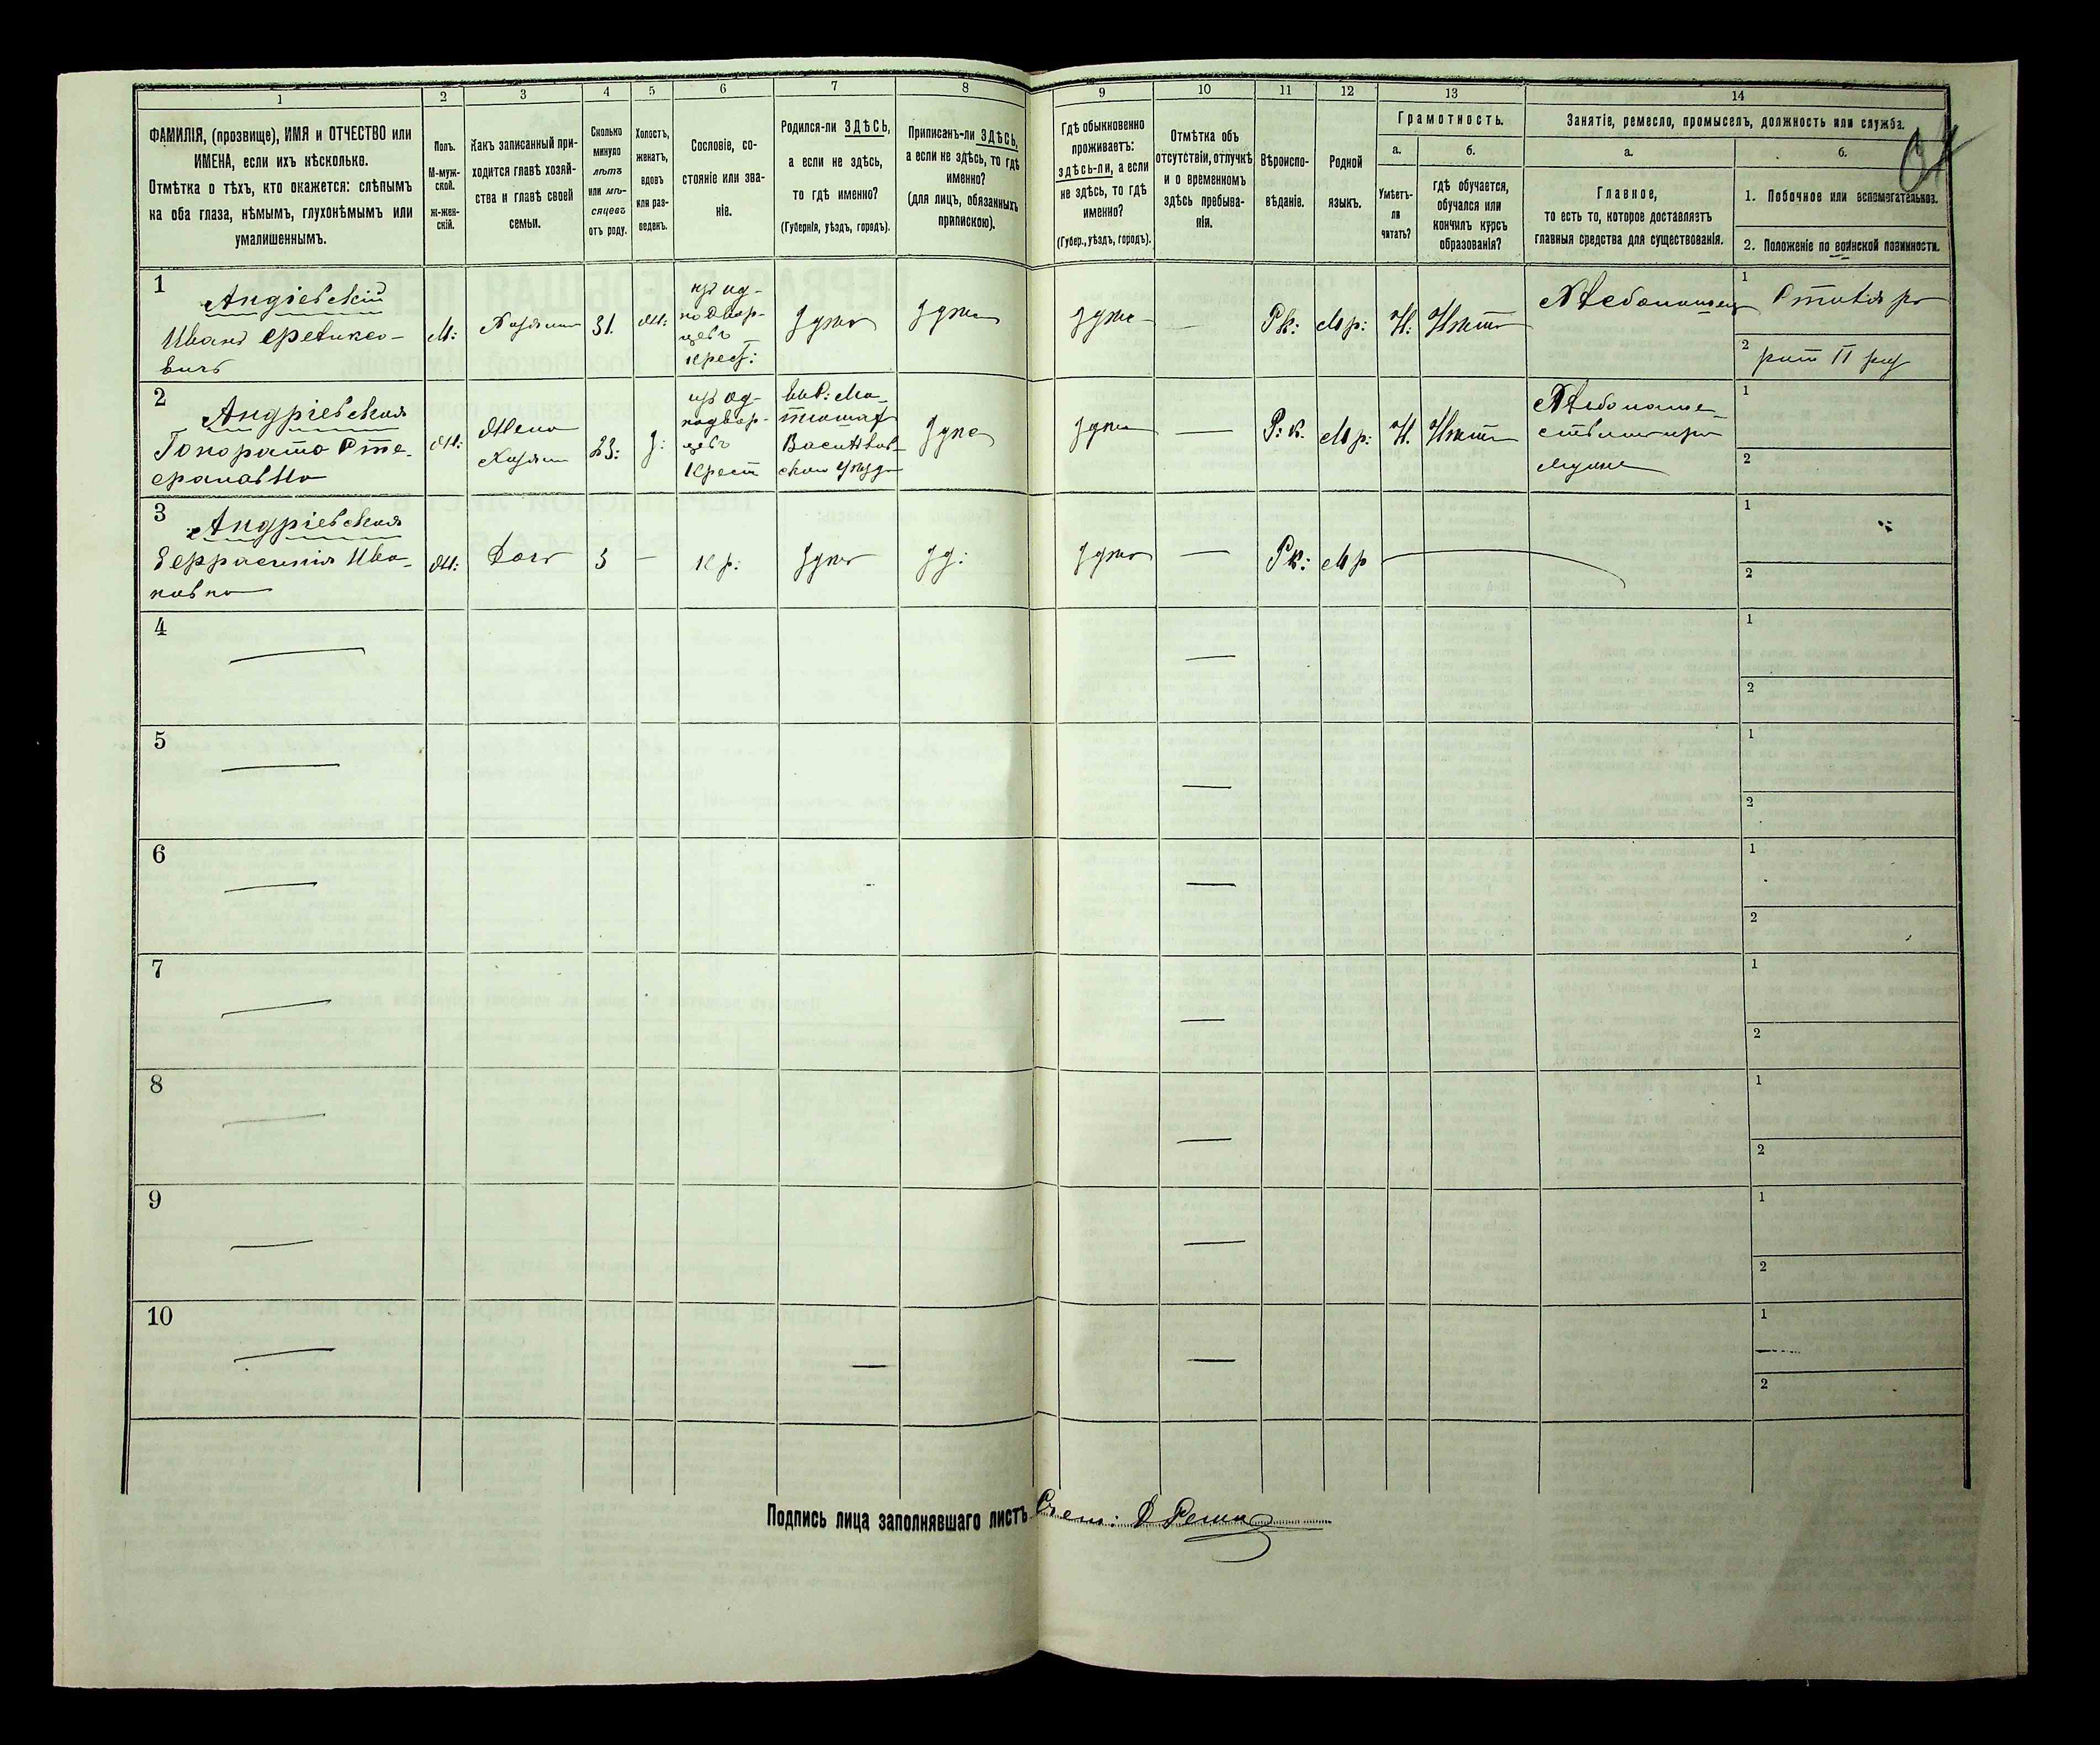 1
2
3
4
5
6
7
8
9
10
11
12
13
14
ФАМИЛІЯ, (прозвище), ИМЯ и ОТЧЕСТВО или
ИМЕНА, если ихъ нѣсколько.
Отмѣтка о тѣхъ, кто окажется: слѣпымъ
на оба глаза, нѣмымъ, глухонѣмымъ или
умалишеннымъ.
Полъ.
М-муж-
ской.
ж-жен-
скій.
Какъ записанный при-
ходится главѣ хозяй-
ства и главѣ своей
семьи.
Сколько
минуло
лѣтъ
или мѣ-
сяцевъ
отъ роду.
Холостъ,
женатъ,
вдовъ
или раз-
веденъ.
Сословіе, со-
стояніе или зва-
ніе.
Родился-ли ЗДѢСЬ,
а если не здѣсь,
то гдѣ именно?
(Губернія, уѣздъ, городъ).
Приписанъ-ли ЗДѢСЬ,
а если не здѣсь, то гдѣ
именно?
(для лицъ, обязанныхъ
припискою).
Гдѣ обыкновенно
проживаетъ:
здѣсь-ли, а если
не здѣсь, то гдѣ
именно?
(Губер., уѣздъ, городъ).
Отмѣтка объ
отсутствіи, отлучкѣ
и о временномъ
здѣсь пребыва-
ніи.
Вѣроиспо-
вѣданіе.
Родной
языкъ.
Грамотность.
а.
б.
Умѣетъ-
ли
читать?
гдѣ обучается,
обучался или
кончилъ курсъ
образованія?
Занятіе, ремесло, промыселъ, должность или служба.
а.
б.
Главное,
то есть то, которое доставляетъ
главныя средства для существованія.
1. Побочное или вспомогательное.
2. Положеніе по воинской повинности.
1
Андріевскій
Иванъ
вичъ
М:
Хозяинъ
31.
Ж:
изъ од-
нодвор-
цевъ
крест:
Здѣсь
Здѣсь
Здѣсь
Рк:
Мр:
Н:
Нѣтъ
1
2
2
Андріевская
Гонората Сте-
фановна
Ж:
Жена
Хозяин
23:
З:
изъ од-
нодвор-
цевъ
Крест
Здѣсь
Здѣсь
—
Р: к.
Мр:
Н.
Нѣтъ
1
2
3
Андріевская
Ива-
новна
Ж:
Дочь
3
—
Кр:
Здѣсь
Зд:
Здѣсь
—
Рк:
Мр
1
2
4
1
2
5
1
2
6
1
2
7
1
2
8
1
2
9
1
2
10
1
2
Подпись лица заполнявшаго листъ